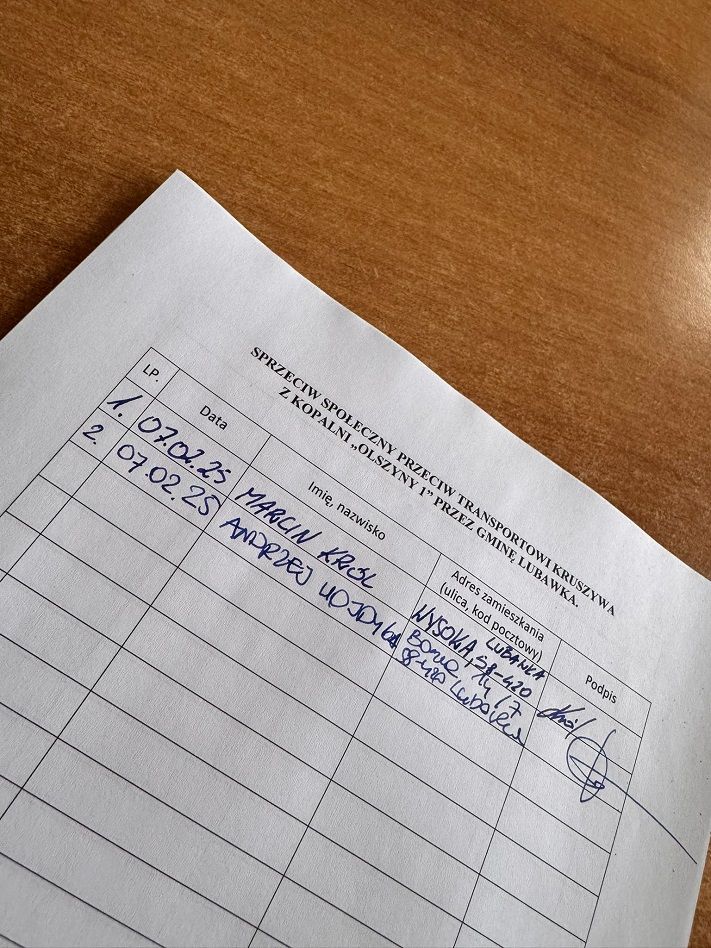 SPRZECIW SPOŁECZNY PRZECIW TRANSPORTOWI KRUSZYWA
Z KOPALNI „OLSZYNY 1” PRZEZ GMINĘ LUBAWKA.
LP.
Data
Imię, nazwisko
Adres zamieszkania
(ulica, kod pocztowy)
Podpis
1.
07.02.25
MARCIN KRÓL
LUBAWKA
WYSOKA, 58-420
2.
07.02.25
ANDRZEJ
Lubawka